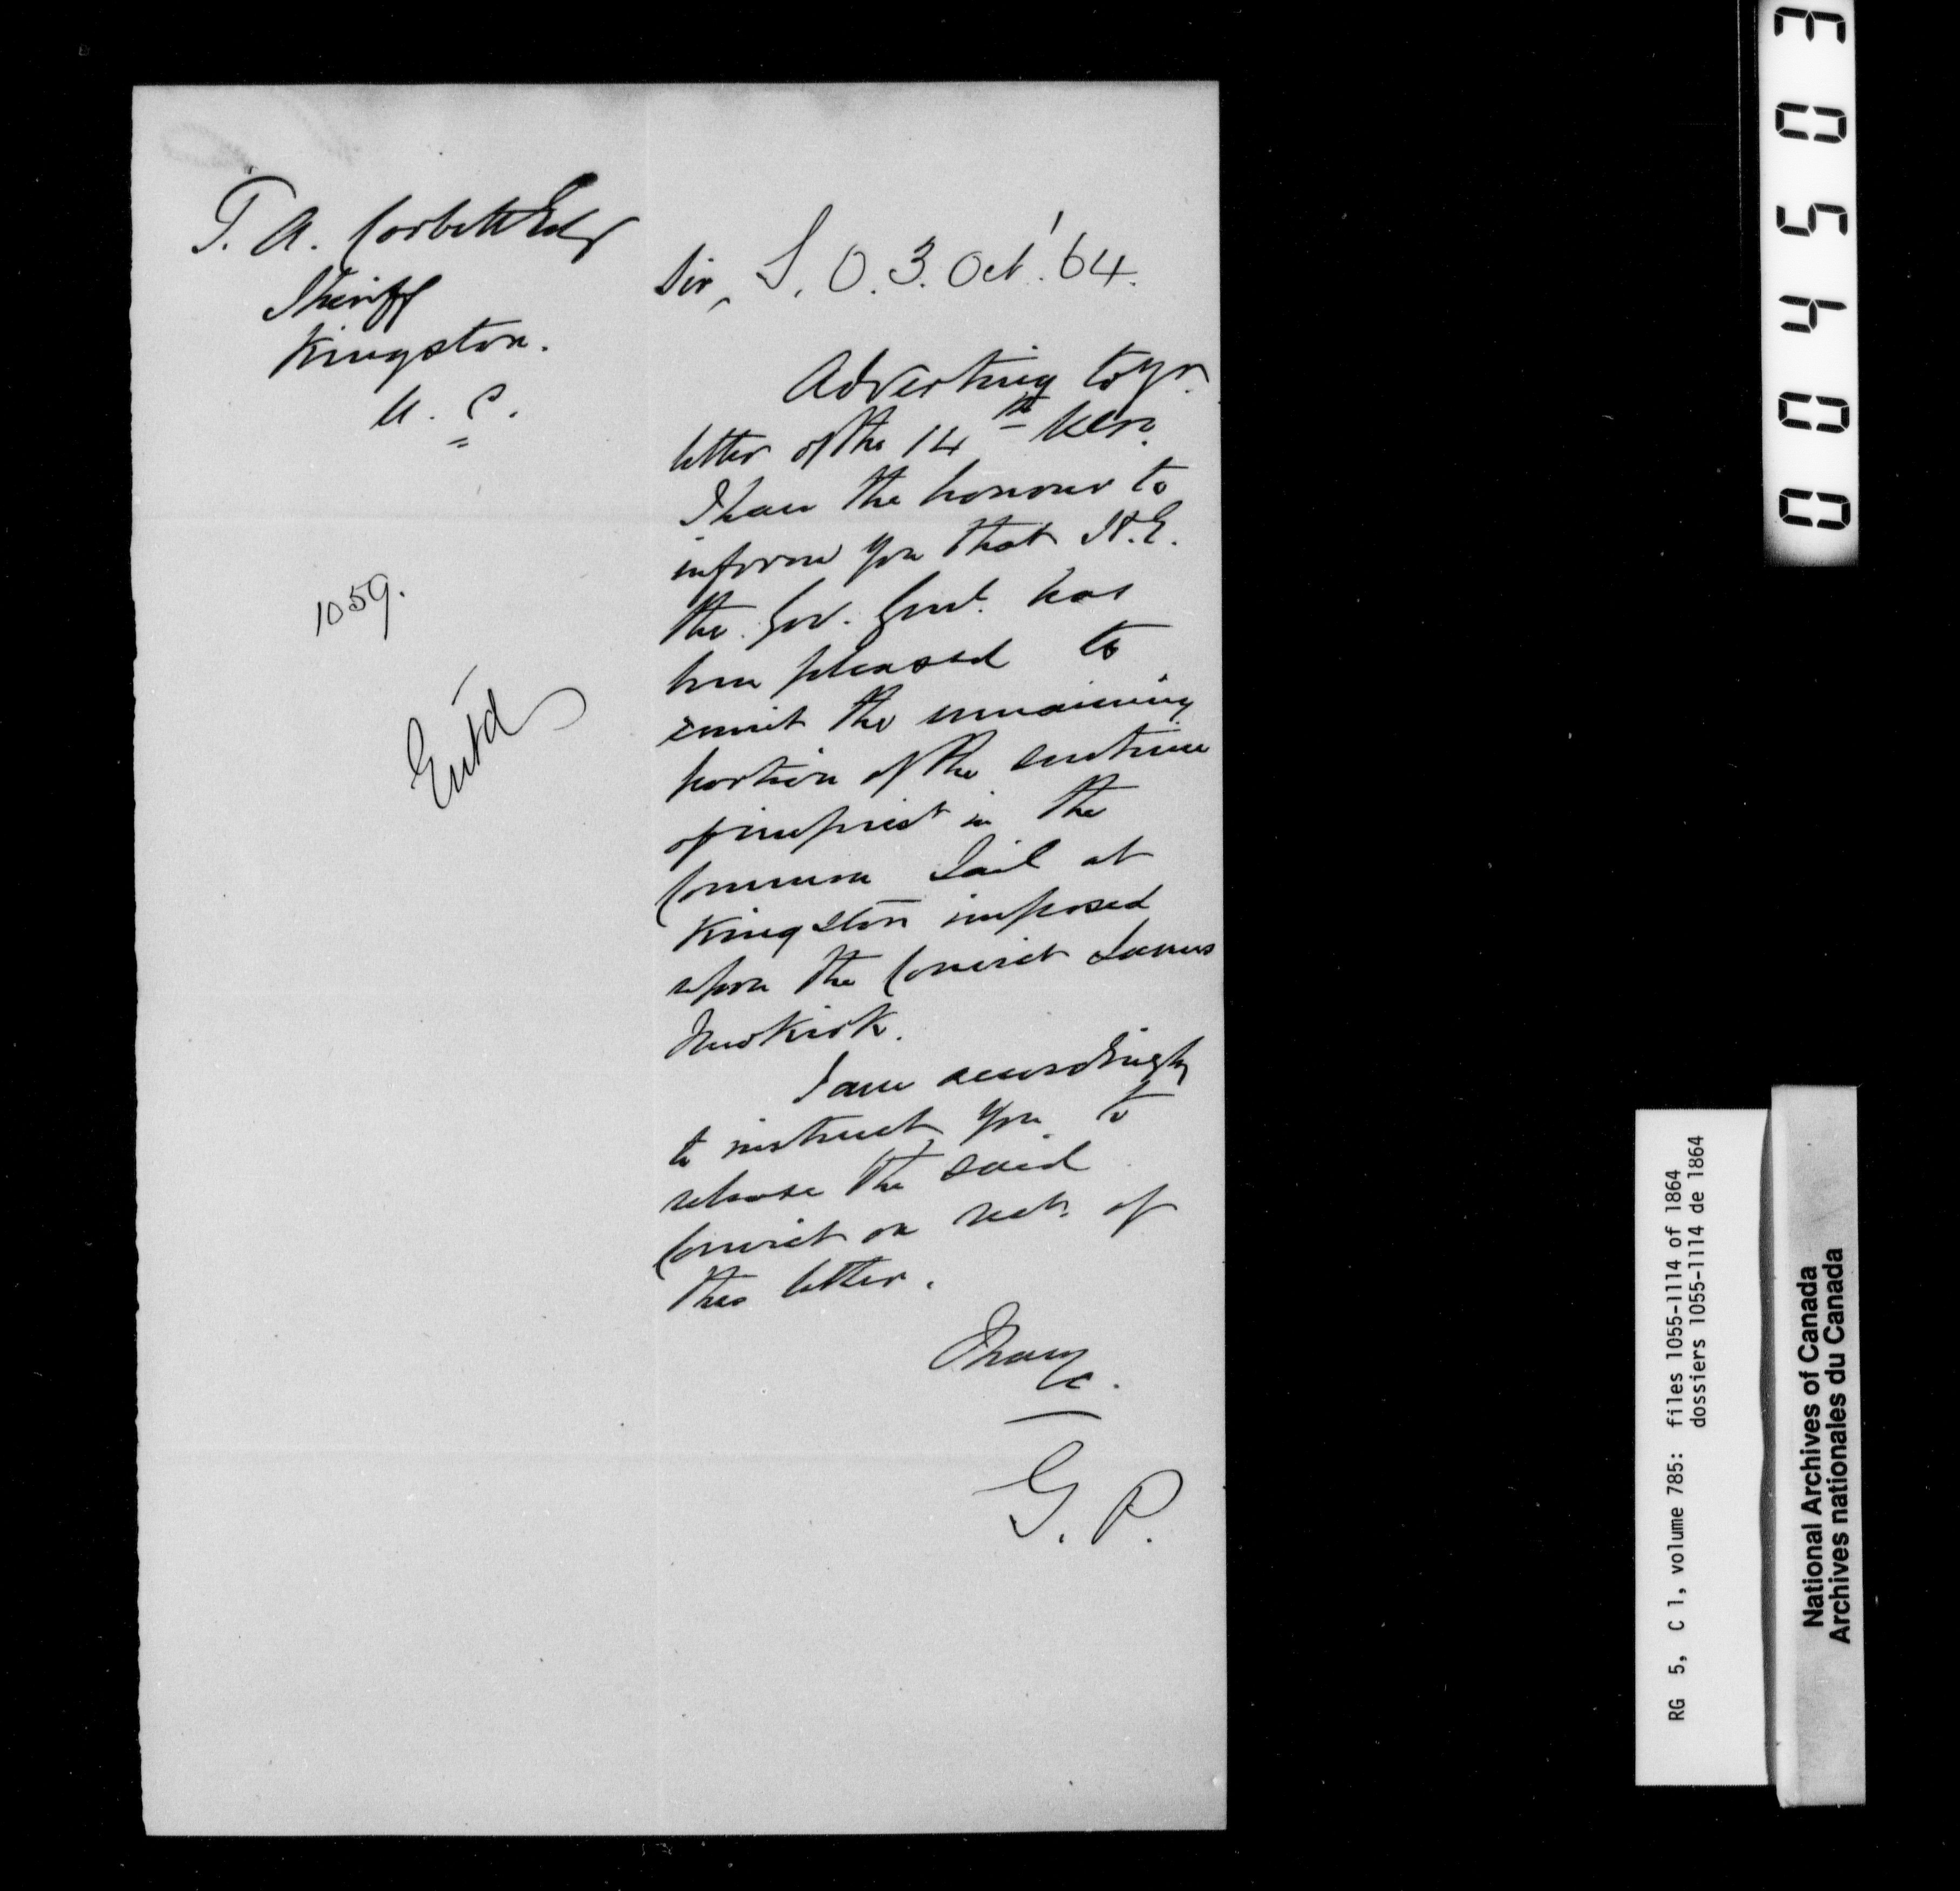 T. A. Corbett Esqr
Sheriff
Kingston.
U. C.
1059.
Entd
Sir, S. O. 3. Oct'. 64.
Adverting to yr.
letter of the 14th
I have the honour to
inform you that H.E.
the Gov. Genl. has
been pleased to
remit the remaining
portion of the sentence
of imprist in the
Common Jail at
Kingston imposed
upon the Convict James
Newkirk.
I am accordingly
to instruct you to
release the said
Convict on rect. of
this letter.
I have
&c.
G. P.
004503
RG 5, C 1, volume 785: files 1055-1114 of 1864
dossiers 1055-1114 de 1864
National Archives of Canada
Archives nationales du Canada